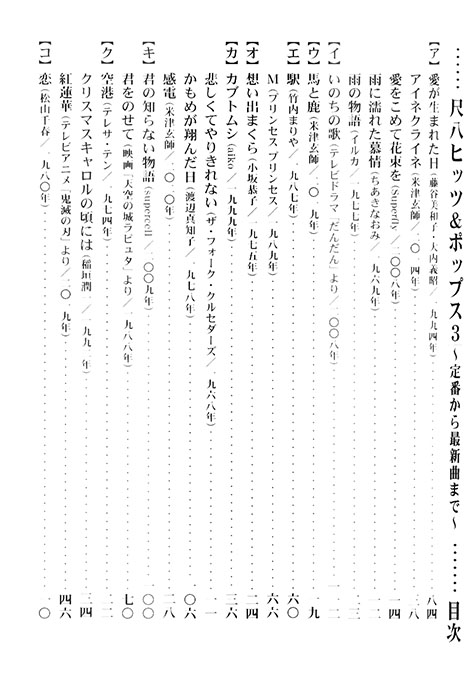 …… 尺八ヒッツ&ポップス3 ~定番から最新曲まで~ …… 目次
【ア】愛が生まれた日(藤谷美和子・大内義昭／九九四年)……八四
アイネクライネ(米津玄師／〇四年)……八
愛をこめて花束を(Superfly／〇〇八年)……四
雨に濡れた慕情(ちあきなおみ／九六九年)……
雨の物語(イルカ／九七七年)……
【イ】いのちの歌(テレビドラマ「だんだん」より／〇〇八年)……
【ウ】馬と鹿(米津玄師／〇九年)……九
【エ】駅(竹内まりや／九八七年)……六〇
M(プリンセス プリンセス／九八九年)……六六
【オ】想い出まくら(小坂恭子／九七五年)……四
【カ】カブトムシ(aiko／九九九年)……六
悲しくてやりきれない(ザ・フォーク・クルセダーズ／九六八年)……
かもめが翔んだ日(渡辺真知子／九七八年)……〇六
感電(米津玄師／〇〇年)……八
【キ】君の知らない物語(supercell／〇〇九年)……〇〇
君をのせて(映画「天空の城ラピュタ」より／九八八年)……七〇
【ク】空港(テレサ・テン／九七四年)……
クリスマスキャロルの頃には(稲垣潤／九九年)……四
紅蓮華(テレビアニメ「鬼滅の刃」より／〇九年)……四六
【コ】恋(松山千春／九八〇年)……〇